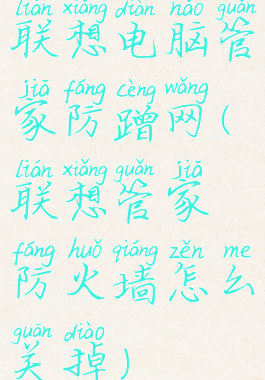 lián xiǎng diàn nǎo guǎn
联想电脑管
jiā fáng cèng wǎng
家防蹭网(
lián xiǎng guǎn jiā
联想管家
fáng huǒ qiáng zěn me
防火墙怎么
guān diào
关掉)